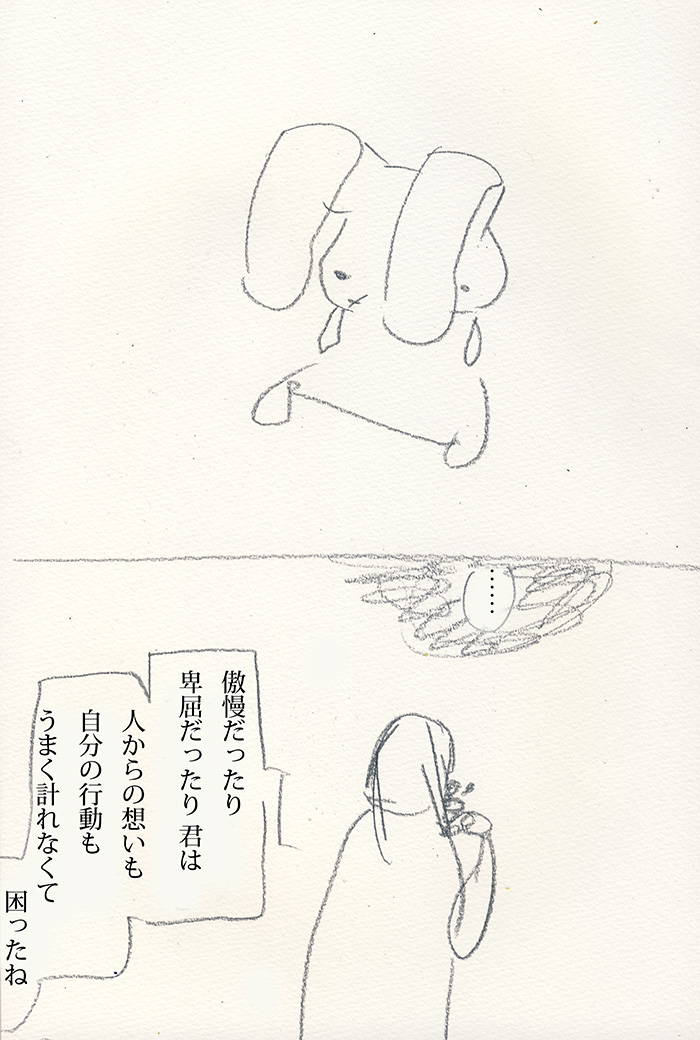 ……
傲慢だったり
卑屈だったり 君は
人からの想いも
自分の行動も
うまく計れなくて
困ったね